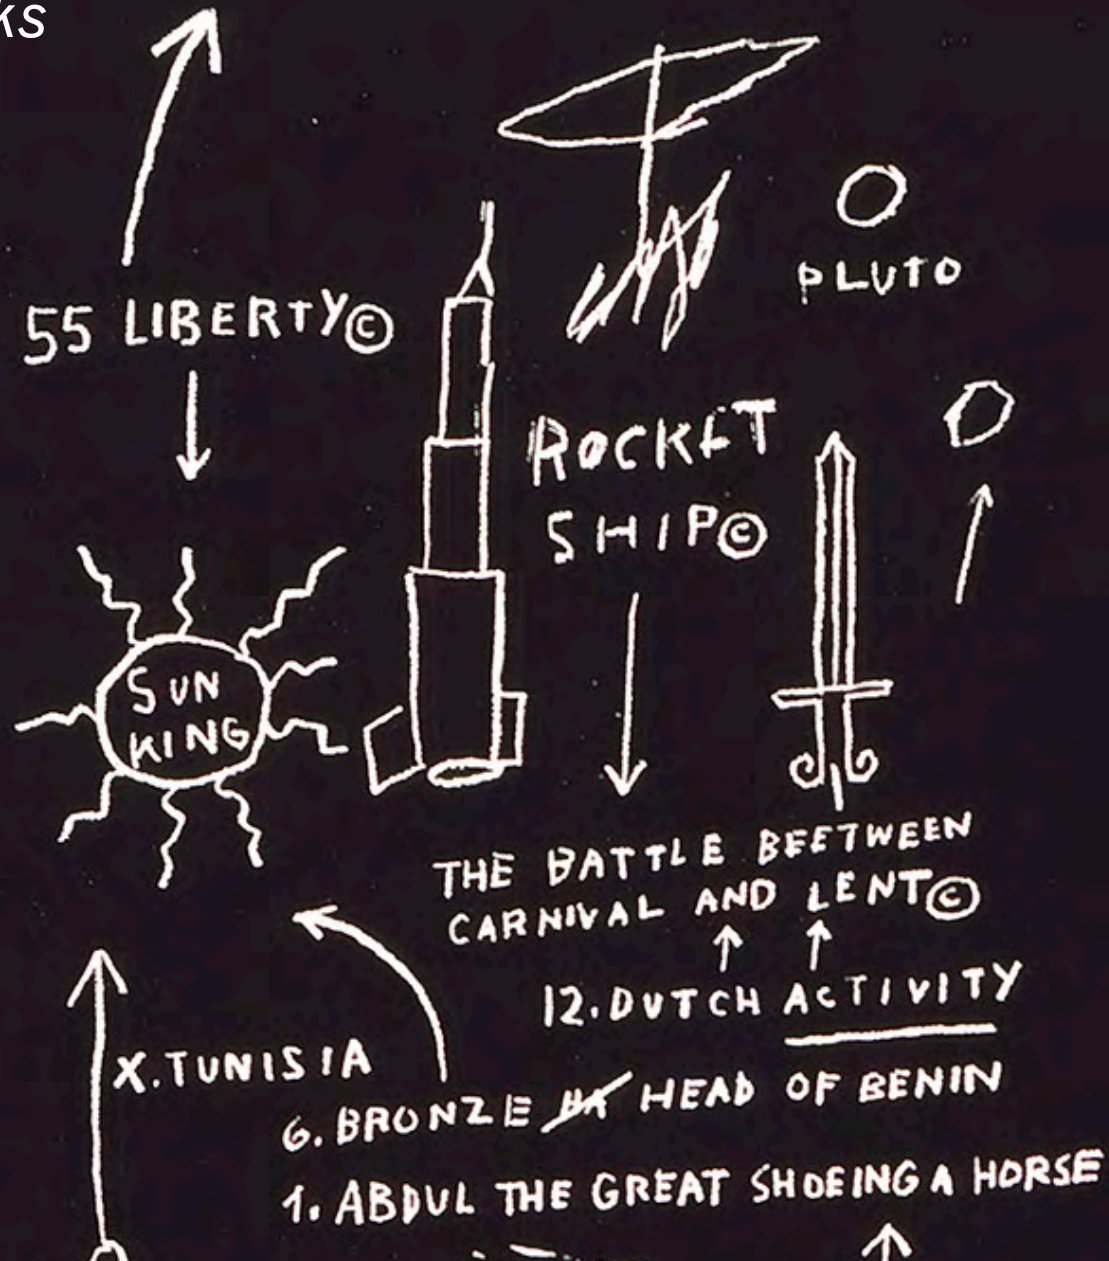 ks
PLUTO
55 LIBERTY©
ROCKET
SHIP©
SUN
KING
THE BATTLE BEETWEEN
CARNIVAL AND LENT©
12.DUTCH ACTIVITY
X.TUNISIA
6.BRONZE HEAD OF BENIN
1. ABDUL THE GREAT SHOEING A HORSE